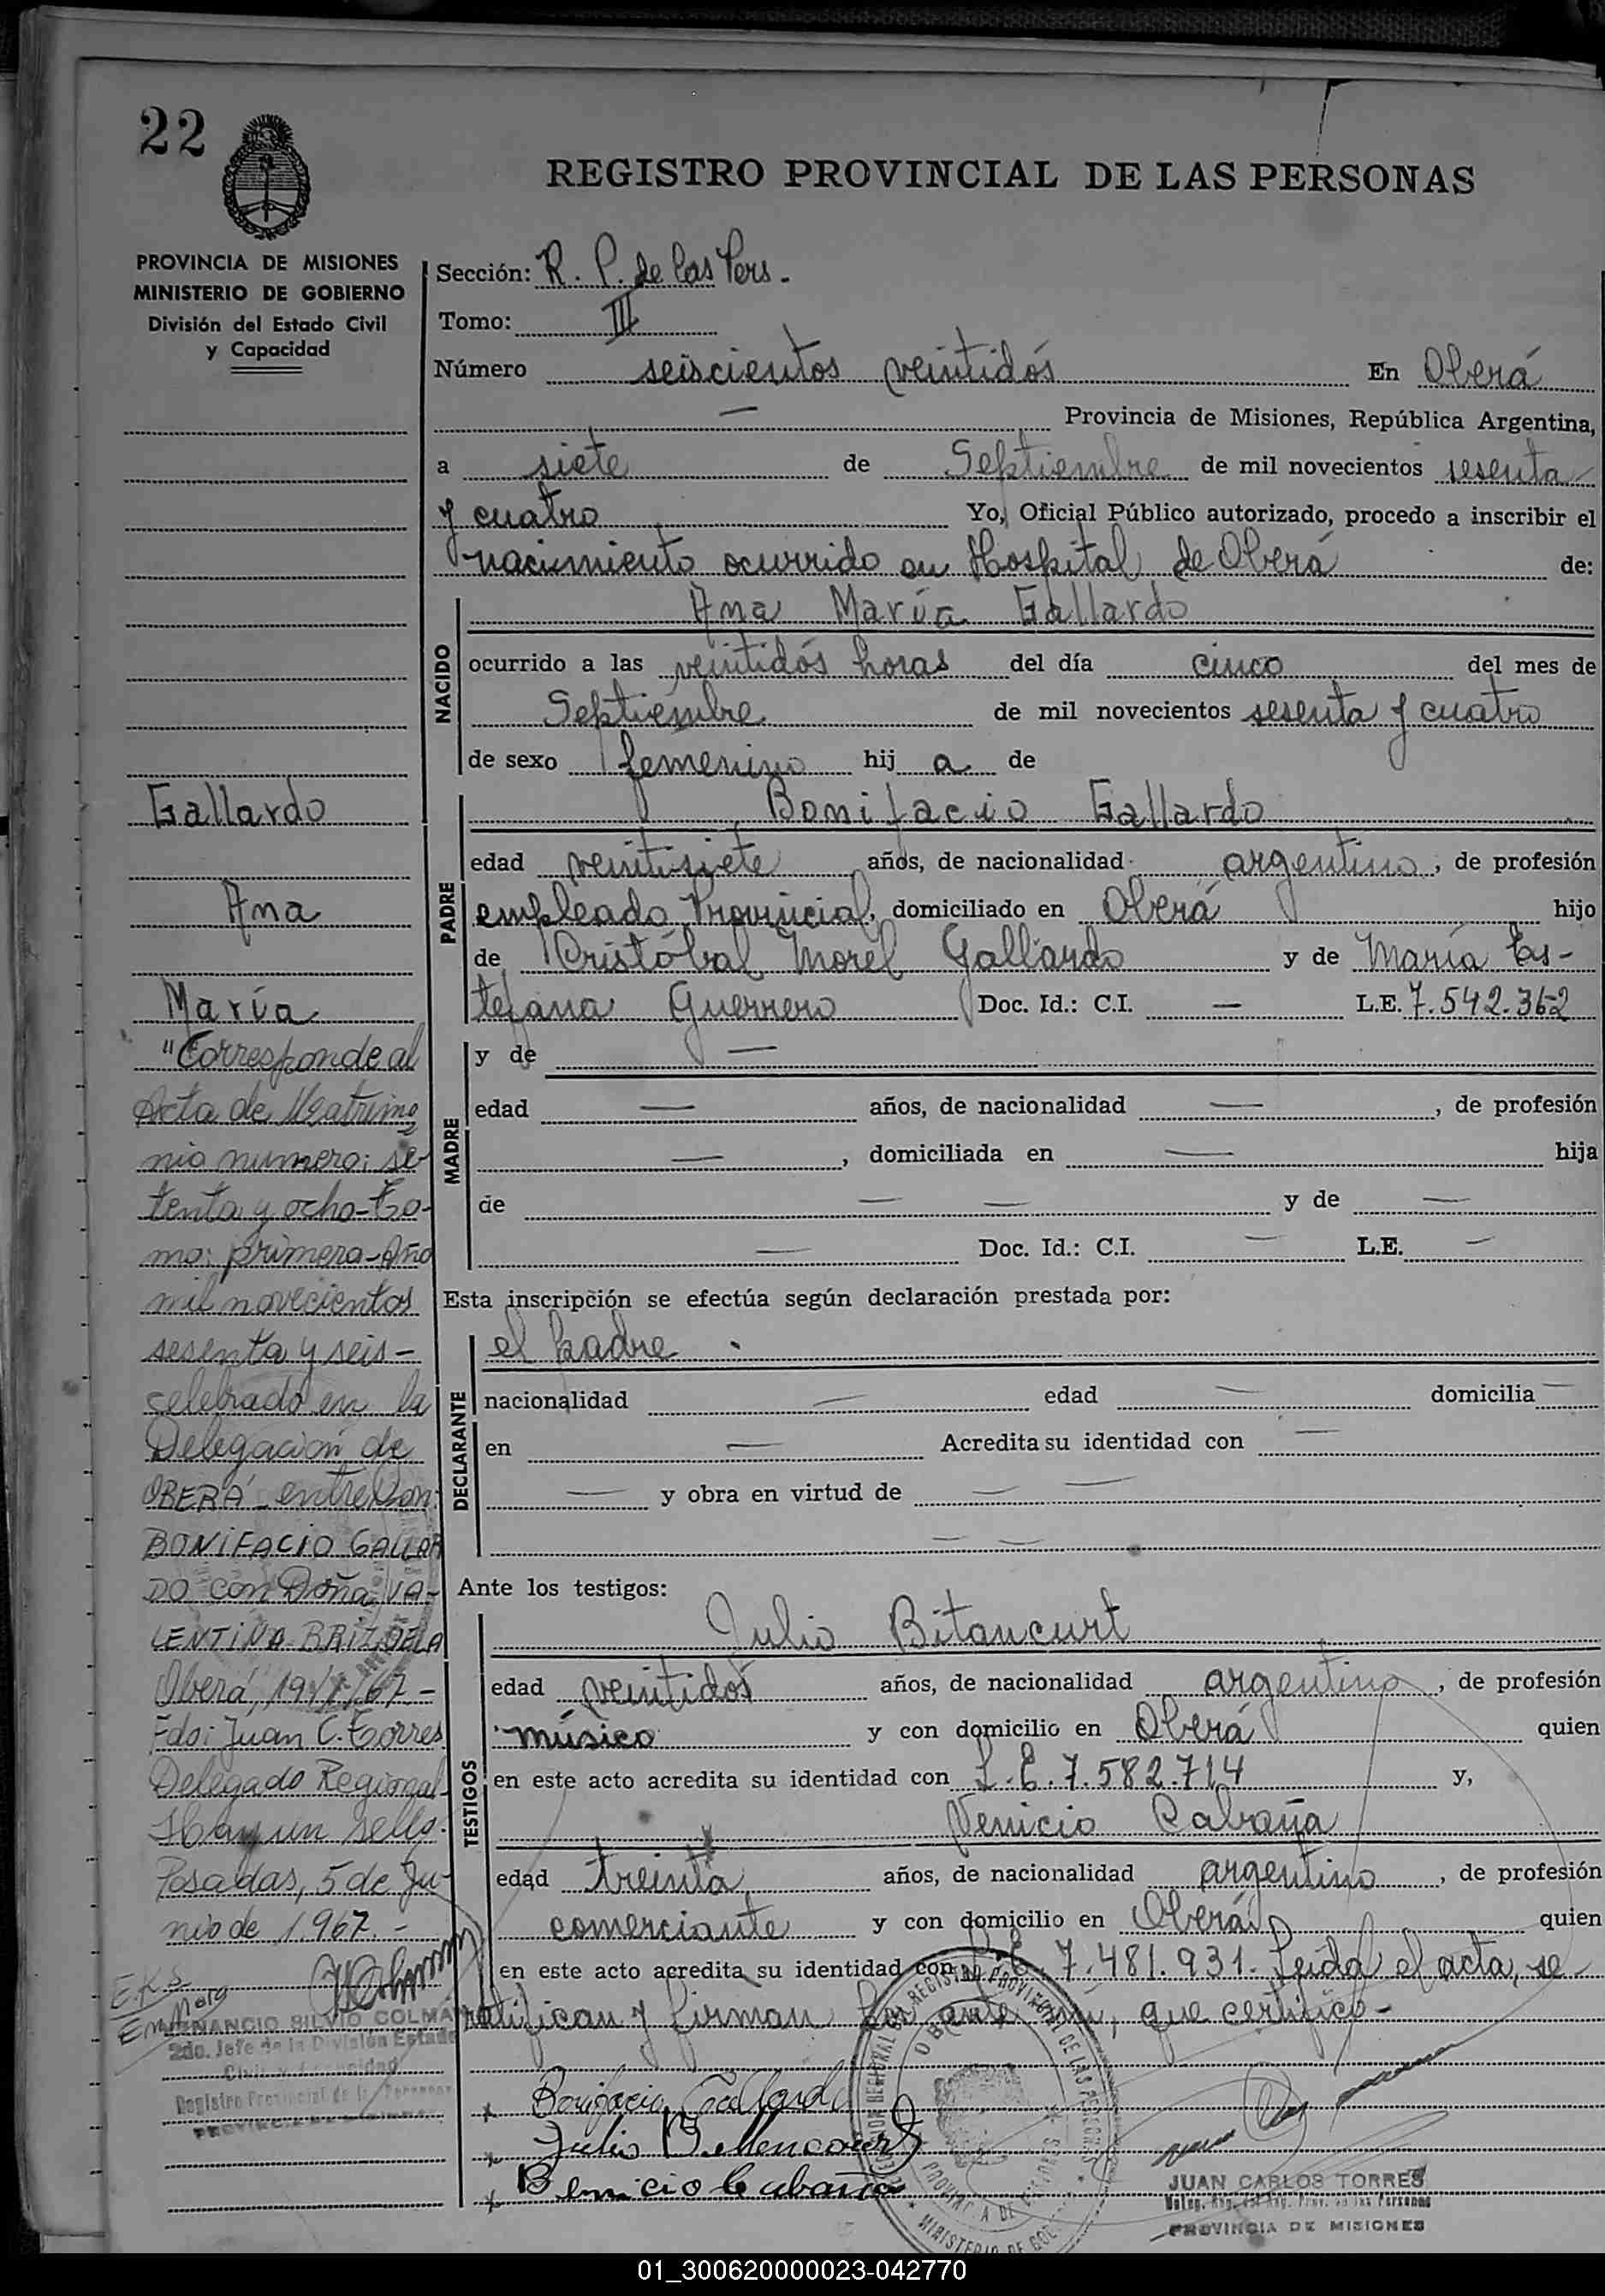 22
REGISTRO PROVINCIAL DE LAS PERSONAS
PROVINCIA DE MISIONES
MINISTERIO DE GOBIERNO
División del Estado Civil
y Capacidad
Gallardo
Ana
María
"Corresponde al
Acta de Matrimo
nio numero: se
tenta y ocho-To-
mo: primero-Año
mil novecientos
sesenta y seis-
celebrado en la
Delegación de
OBERÁ-entre Don:
BONIFACIO GALLAR
DO con Doña VA-
LENTINA BRIZUELA
Oberá, 19/1/67-
Fdo: Juan C. Torres
Delegado Regional
Hay un sello.
Posadas, 5 de Ju-
nio de 1.967.-
VENANCIO SILVIO COLMAN
2do. Jefe de la División Estado
Civil y Capacidad
Registro Provincial de las Personas
PROVINCIA DE MISIONES
Sección: R. P. de las Pers.
Tomo: III
Número seiscientos veintidós En Oberá
— Provincia de Misiones, República Argentina,
a siete de Septiembre de mil novecientos sesenta
y cuatro Yo, Oficial Público autorizado, procedo a inscribir el
nacimiento ocurrido en Hospital de Oberá de:
NACIDO
Ana María Gallardo
ocurrido a las veintidós horas del día cinco del mes de
Septiembre de mil novecientos sesenta y cuatro
de sexo femenino hij a de
PADRE
Bonifacio Gallardo
edad veintisiete años, de nacionalidad argentino, de profesión
empleado Provincial, domiciliado en Oberá hijo
de Cristóbal Morel Gallardo y de María Es-
tefana Guerrero Doc. Id.: C.I. — L.E. 7.542.362
MADRE
y de —
edad — años, de nacionalidad —, de profesión
—, domiciliada en — hija
de — — y de —
— Doc. Id.: C.I. — L.E. —
Esta inscripción se efectúa según declaración prestada por:
DECLARANTE
el padre.
nacionalidad — edad — domicilia —
en — Acredita su identidad con —
— y obra en virtud de — —
— —
Ante los testigos:
TESTIGOS
Julio Bitancurt
edad veintidos años, de nacionalidad argentino, de profesión
músico y con domicilio en Oberá quien
en este acto acredita su identidad con L.E. 7.582.714 y,
Venicio Cabaña
edad treinta años, de nacionalidad argentino, de profesión
comerciante y con domicilio en Oberá quien
en este acto acredita su identidad con L.E. 7.481.931. Leída el acta, se
ratifican y firman por ante mí, que certifico-
x Bonifacio Gallardo
x Julio Bittencourt
x Benicio Cabaña
JUAN CARLOS TORRES
PROVINCIA DE MISIONES
01_300620000023-042770